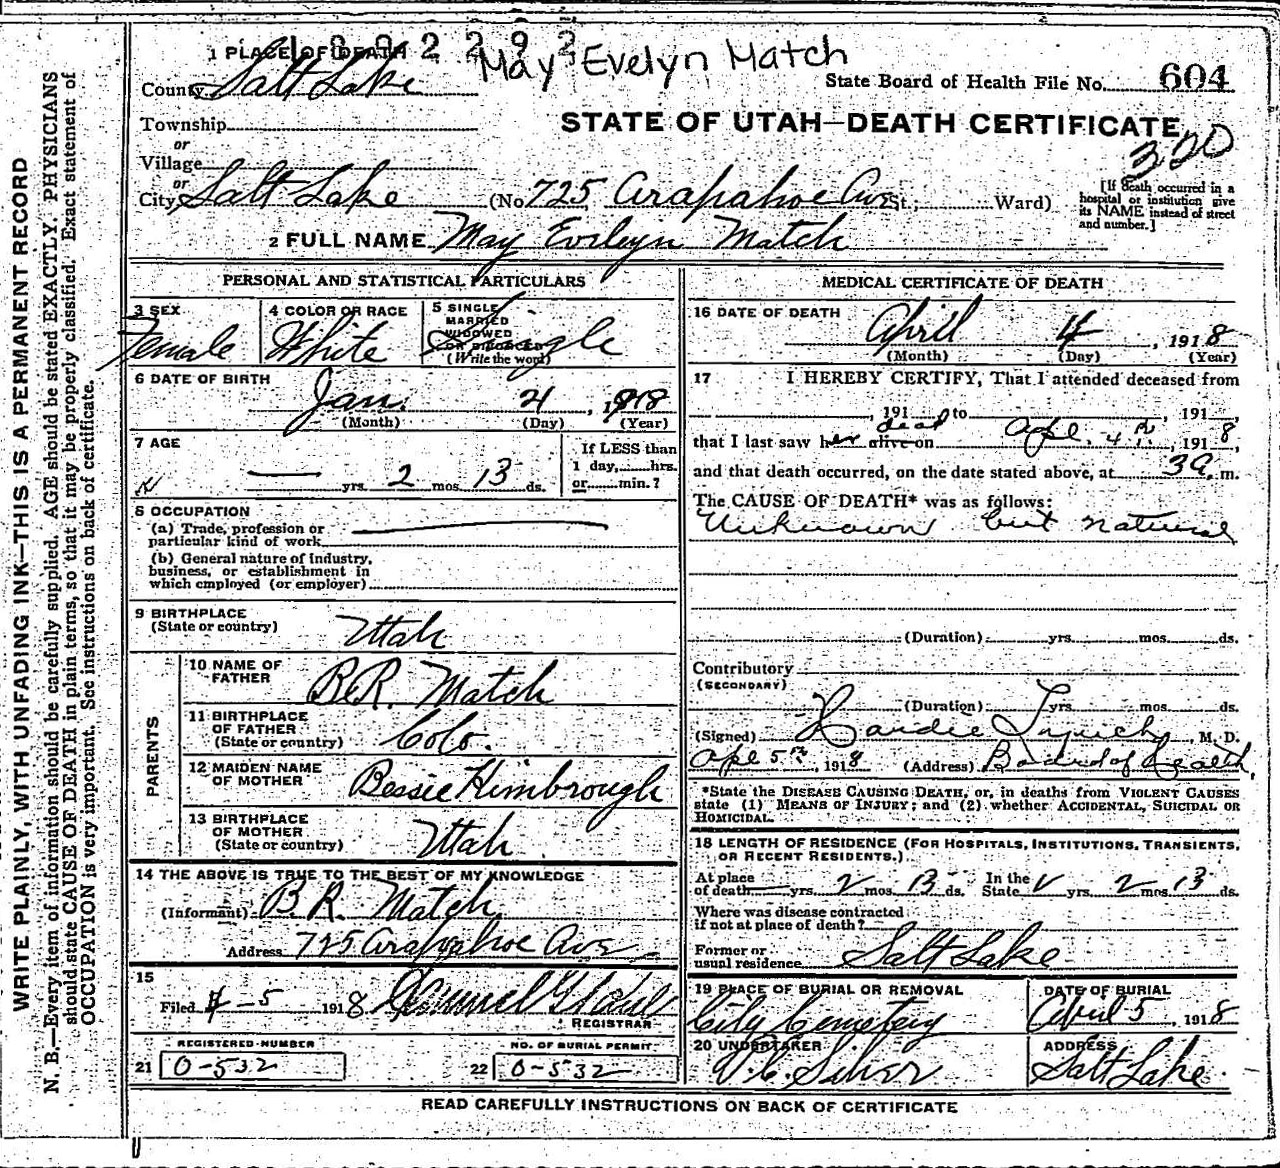 1892292
May Evelyn Match
1 PLACE OF DEATH
County Salt Lake
State Board of Health File No. 604
Township
STATE OF UTAH—DEATH CERTIFICATE
or
Village
320
or
City Salt Lake (No. 725 Arapahoe Ave St.; Ward)
[If death occurred in a hospital or institution give its NAME instead of street and number.]
2 FULL NAME May Evelyn Match
PERSONAL AND STATISTICAL PARTICULARS
3 SEX
Female
4 COLOR OR RACE
White
5 SINGLE MARRIED WIDOWED OR DIVORCED
(Write the word)
Single
6 DATE OF BIRTH
Jan. 21, 1918
(Month) (Day) (Year)
7 AGE
— yrs. 2 mos. 13 ds.
If LESS than
1 day, hrs.
or min.?
8 OCCUPATION
(a) Trade, profession or
particular kind of work
(b) General nature of industry,
business, or establishment in
which employed (or employer)
9 BIRTHPLACE
(State or country) Utah
PARENTS
10 NAME OF
FATHER B.R. Match
11 BIRTHPLACE
OF FATHER
(State or country) Colo.
12 MAIDEN NAME
OF MOTHER Bessie Kimbrough
13 BIRTHPLACE
OF MOTHER
(State or country) Utah
14 THE ABOVE IS TRUE TO THE BEST OF MY KNOWLEDGE
(Informant) B.R. Match
Address 725 Arapahoe Ave
15
Filed 4-5 1918
REGISTRAR
REGISTERED NUMBER
21 0-532
NO. OF BURIAL PERMIT
22 0-532
MEDICAL CERTIFICATE OF DEATH
16 DATE OF DEATH
April 4, 1918
(Month) (Day) (Year)
17 I HEREBY CERTIFY, That I attended deceased from
, 191 to , 191 ,
dead
that I last saw her alive on Apl. 4th, 1918,
and that death occurred, on the date stated above, at 3 a. m.
The CAUSE OF DEATH* was as follows:
Unknown but natural
(Duration) yrs. mos. ds.
Contributory
(SECONDARY)
(Duration) yrs. mos. ds.
(Signed) , M. D.
Apl 5th, 1918 (Address) Board of Health,
*State the DISEASE CAUSING DEATH, or, in deaths from VIOLENT CAUSES
state (1) MEANS OF INJURY; and (2) whether ACCIDENTAL, SUICIDAL OR
HOMICIDAL.
18 LENGTH OF RESIDENCE (FOR HOSPITALS, INSTITUTIONS, TRANSIENTS,
OR RECENT RESIDENTS.)
At place of death yrs. 2 mos. 13 ds. In the State yrs. 2 mos. 13 ds.
Where was disease contracted
if not at place of death?
Former or
usual residence Salt Lake
19 PLACE OF BURIAL OR REMOVAL
City Cemetery
DATE OF BURIAL
April 5, 1918
20 UNDERTAKER
Silver
ADDRESS
Salt Lake
READ CAREFULLY INSTRUCTIONS ON BACK OF CERTIFICATE
WRITE PLAINLY, WITH UNFADING INK—THIS IS A PERMANENT RECORD
N. B.—Every item of information should be carefully supplied. AGE should be stated EXACTLY. PHYSICIANS
should state CAUSE OF DEATH in plain terms, so that it may be properly classified. Exact statement of
OCCUPATION is very important. See instructions on back of certificate.